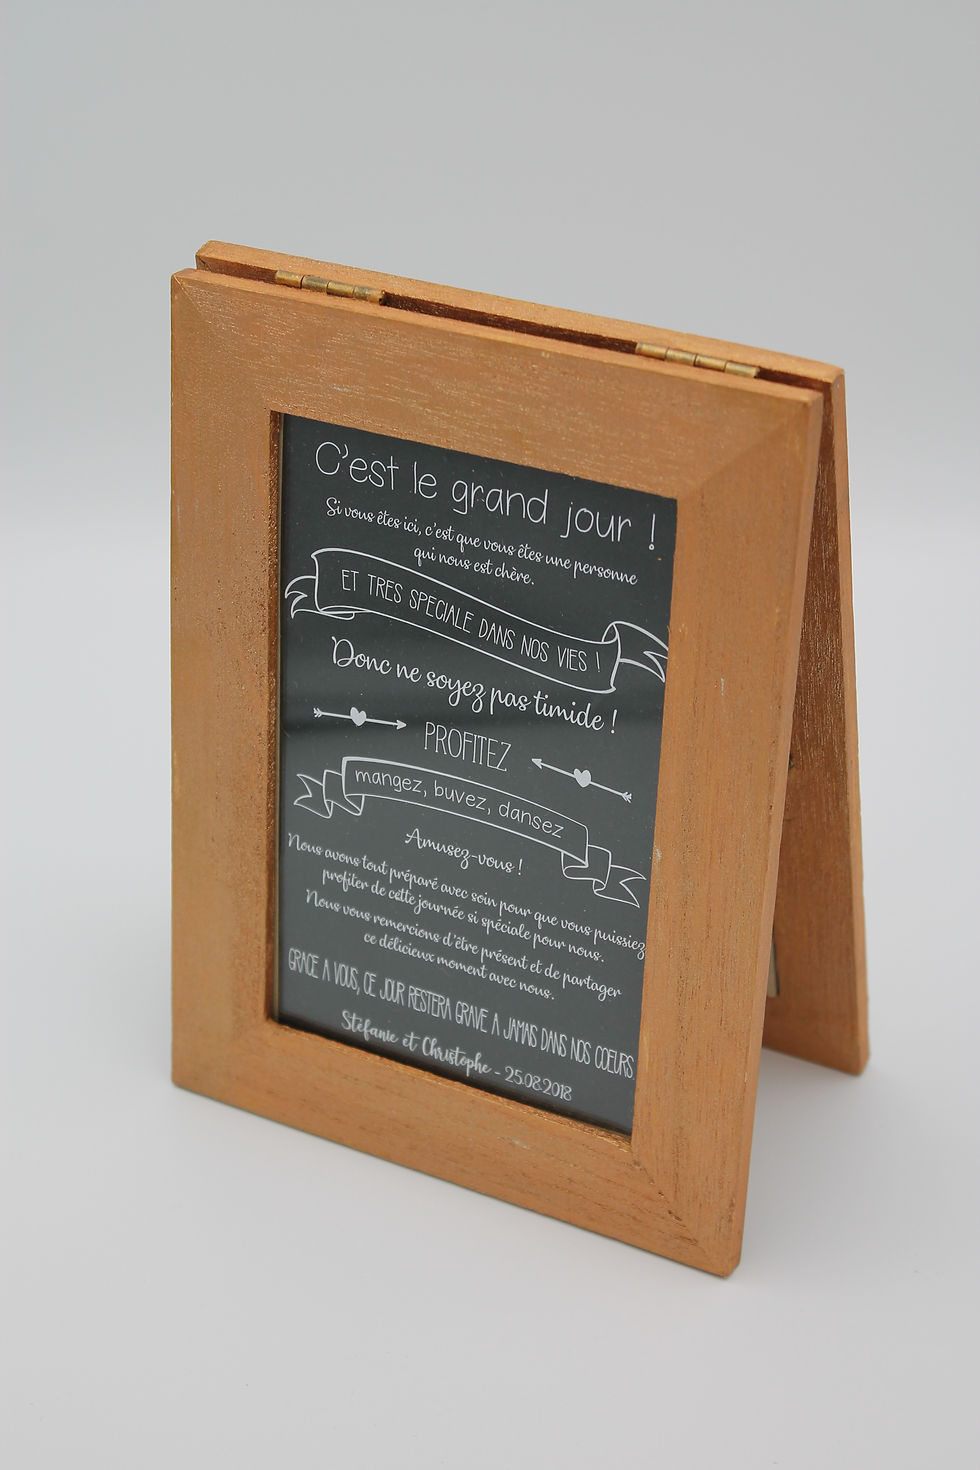 C'est le grand jour !
Si vous êtes ici, c'est que vous êtes une personne
qui nous est chère.
ET TRES SPECIALE DANS NOS VIES !
Donc ne soyez pas timide !
PROFITEZ
mangez, buvez, dansez
Amusez-vous !
Nous avons tout préparé avec soin pour que vous puissiez
profiter de cette journée si spéciale pour nous.
Nous vous remercions d'être présent et de partager
ce délicieux moment avec nous.
GRACE A VOUS, CE JOUR RESTERA GRAVE A JAMAIS DANS NOS COEURS
Stéfanie et Christophe - 25.08.2018